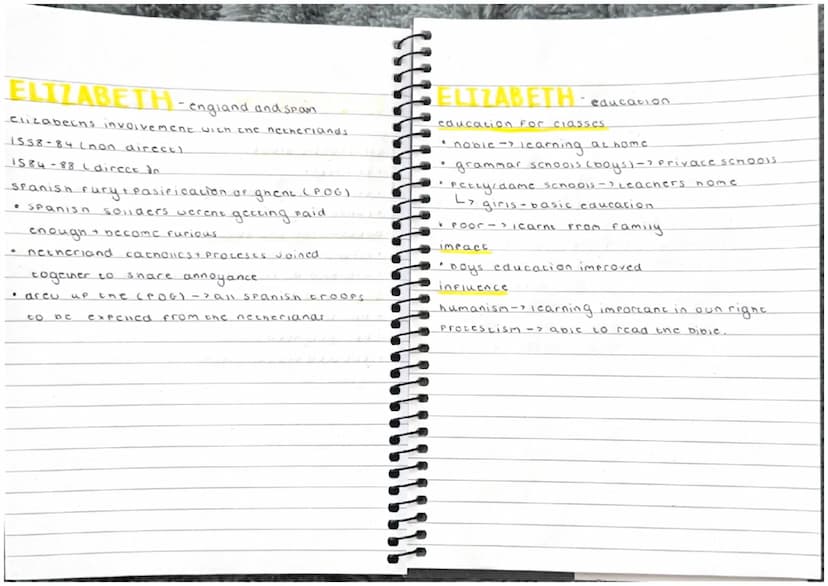 ELIZABETH - england and spain
Elizabeths involvement with the netherlands
1558-84 (non direct)
1584-88 (direct)
Spanish fury + pasification of ghent (POG)
• Spanish soilders werent getting paid
enough + become furious
• netherland catholics + protests joined
together to share annoyance
• drew up the (POG) -> all spanish troops
to be expelled from the netherlands
ELIZABETH - education
education for classes
• noble -> learning at home
• grammar schools (boys) -> private schools
• petty/dame schools -> teachers home
↳ girls - basic education
• poor -> learnt from family
impact
• boys education improved
influence
humanism -> learning important in own right
protestism -> able to read the bible.